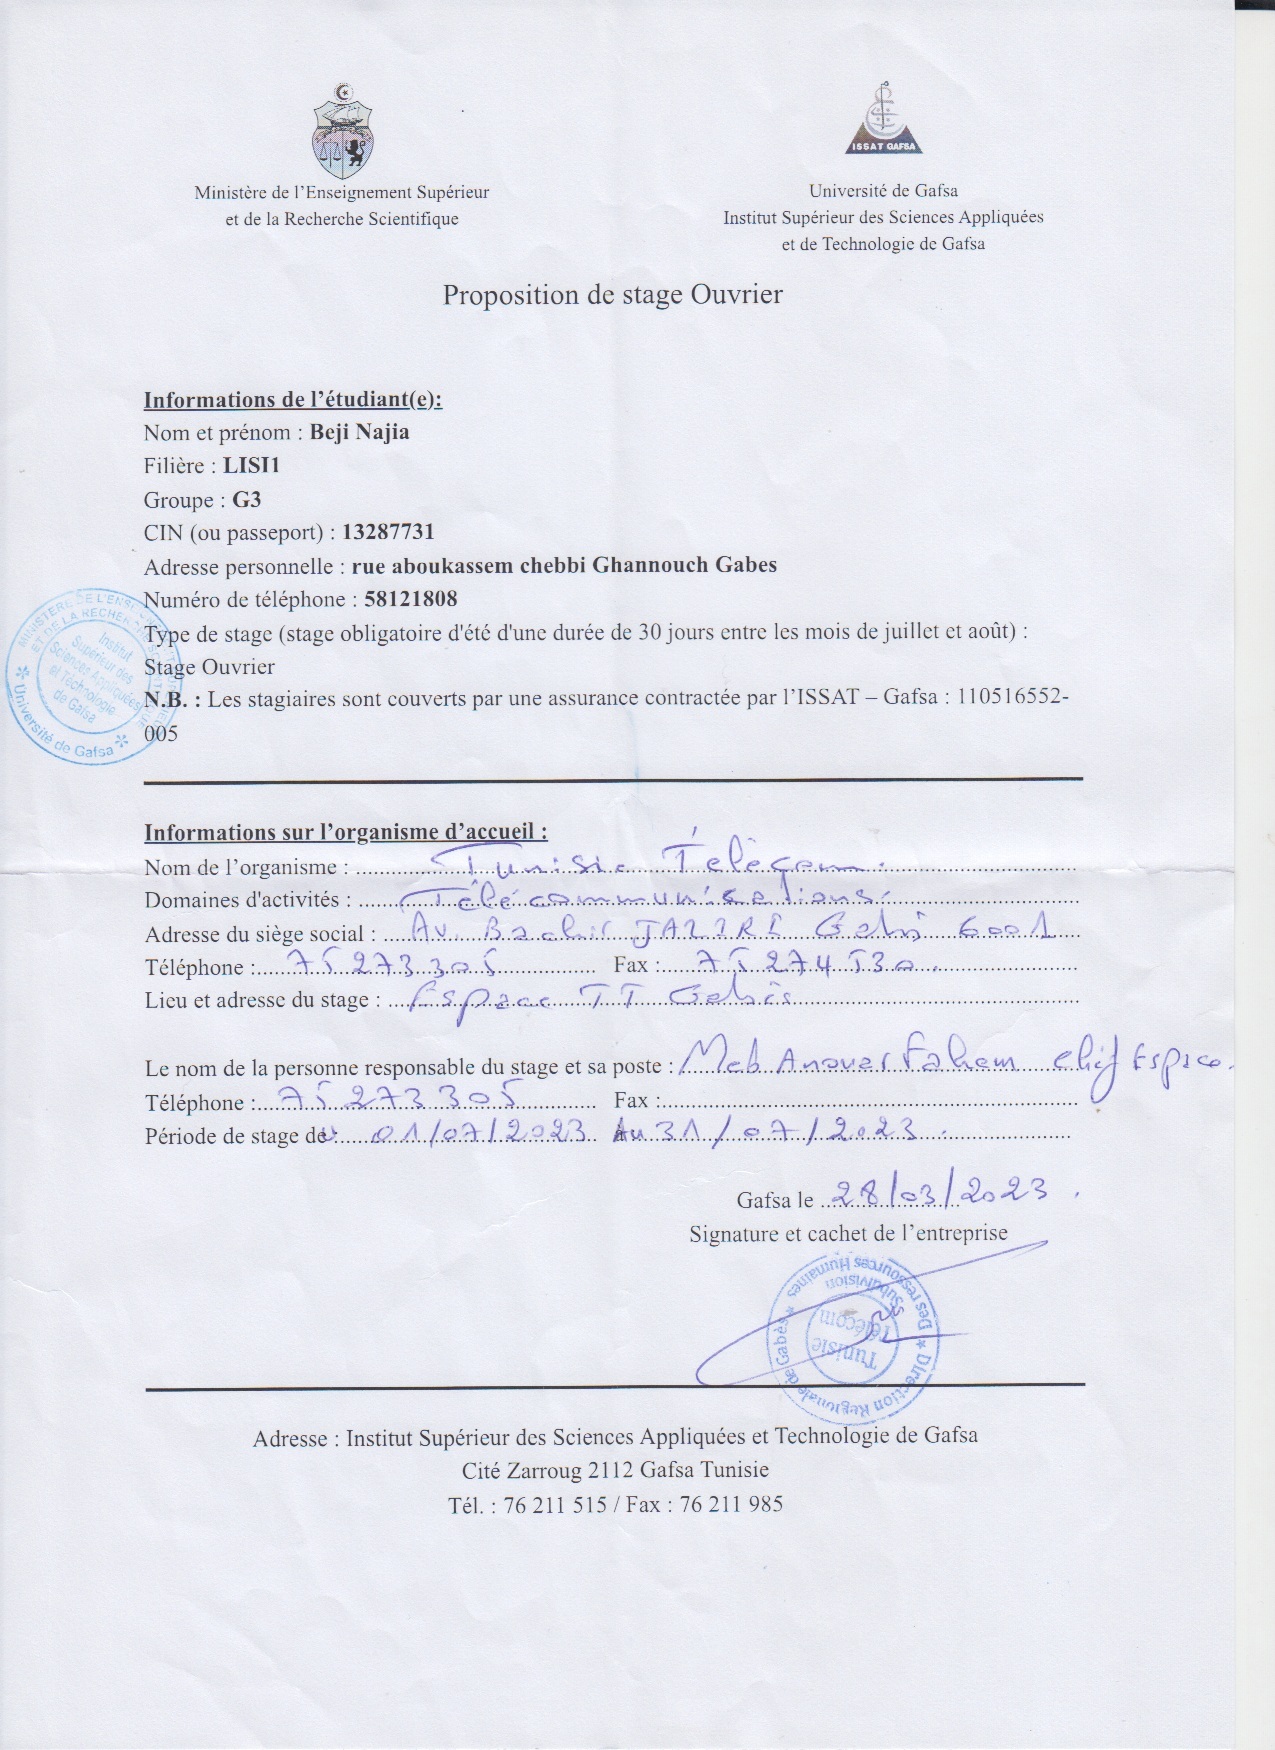 ISSAT GAFSA
Ministère de l'Enseignement Supérieur
et de la Recherche Scientifique
Université de Gafsa
Institut Supérieur des Sciences Appliquées
et de Technologie de Gafsa
Proposition de stage Ouvrier
Informations de l'étudiant(e):
Nom et prénom : Beji Najia
Filière : LISI1
Groupe : G3
CIN (ou passeport) : 13287731
Adresse personnelle : rue aboukassem chebbi Ghannouch Gabes
Numéro de téléphone : 58121808
Type de stage (stage obligatoire d'été d'une durée de 30 jours entre les mois de juillet et août) :
Stage Ouvrier
N.B. : Les stagiaires sont couverts par une assurance contractée par l'ISSAT – Gafsa : 110516552-
005
MINISTERE DE L'ENS
ET DE LA RECHERCHE
Institut
Supérieur des
Sciences Appliquées
et Technologie
de Gafsa
* Université de Gafsa *
Informations sur l'organisme d'accueil :
Nom de l'organisme : Tunisie Télécom.
Domaines d'activités : Télécommunications.
Adresse du siège social : Av. Bachir JAZIRI Gabès 6001
Téléphone : 75 273 305 Fax : 75 274 530.
Lieu et adresse du stage : Espace TT Gabès
Le nom de la personne responsable du stage et sa poste : Anouar Fahem chef Espace.
Téléphone : 75 273 305 Fax :
Période de stage du : 01/07/2023 Au 31/07/2023.
Gafsa le 28/03/2023.
Signature et cachet de l'entreprise
Direction Régionale de Gabès *
Des ressources Humaines *
Subdivision
Tunisie
Télécom
Adresse : Institut Supérieur des Sciences Appliquées et Technologie de Gafsa
Cité Zarroug 2112 Gafsa Tunisie
Tél. : 76 211 515 / Fax : 76 211 985